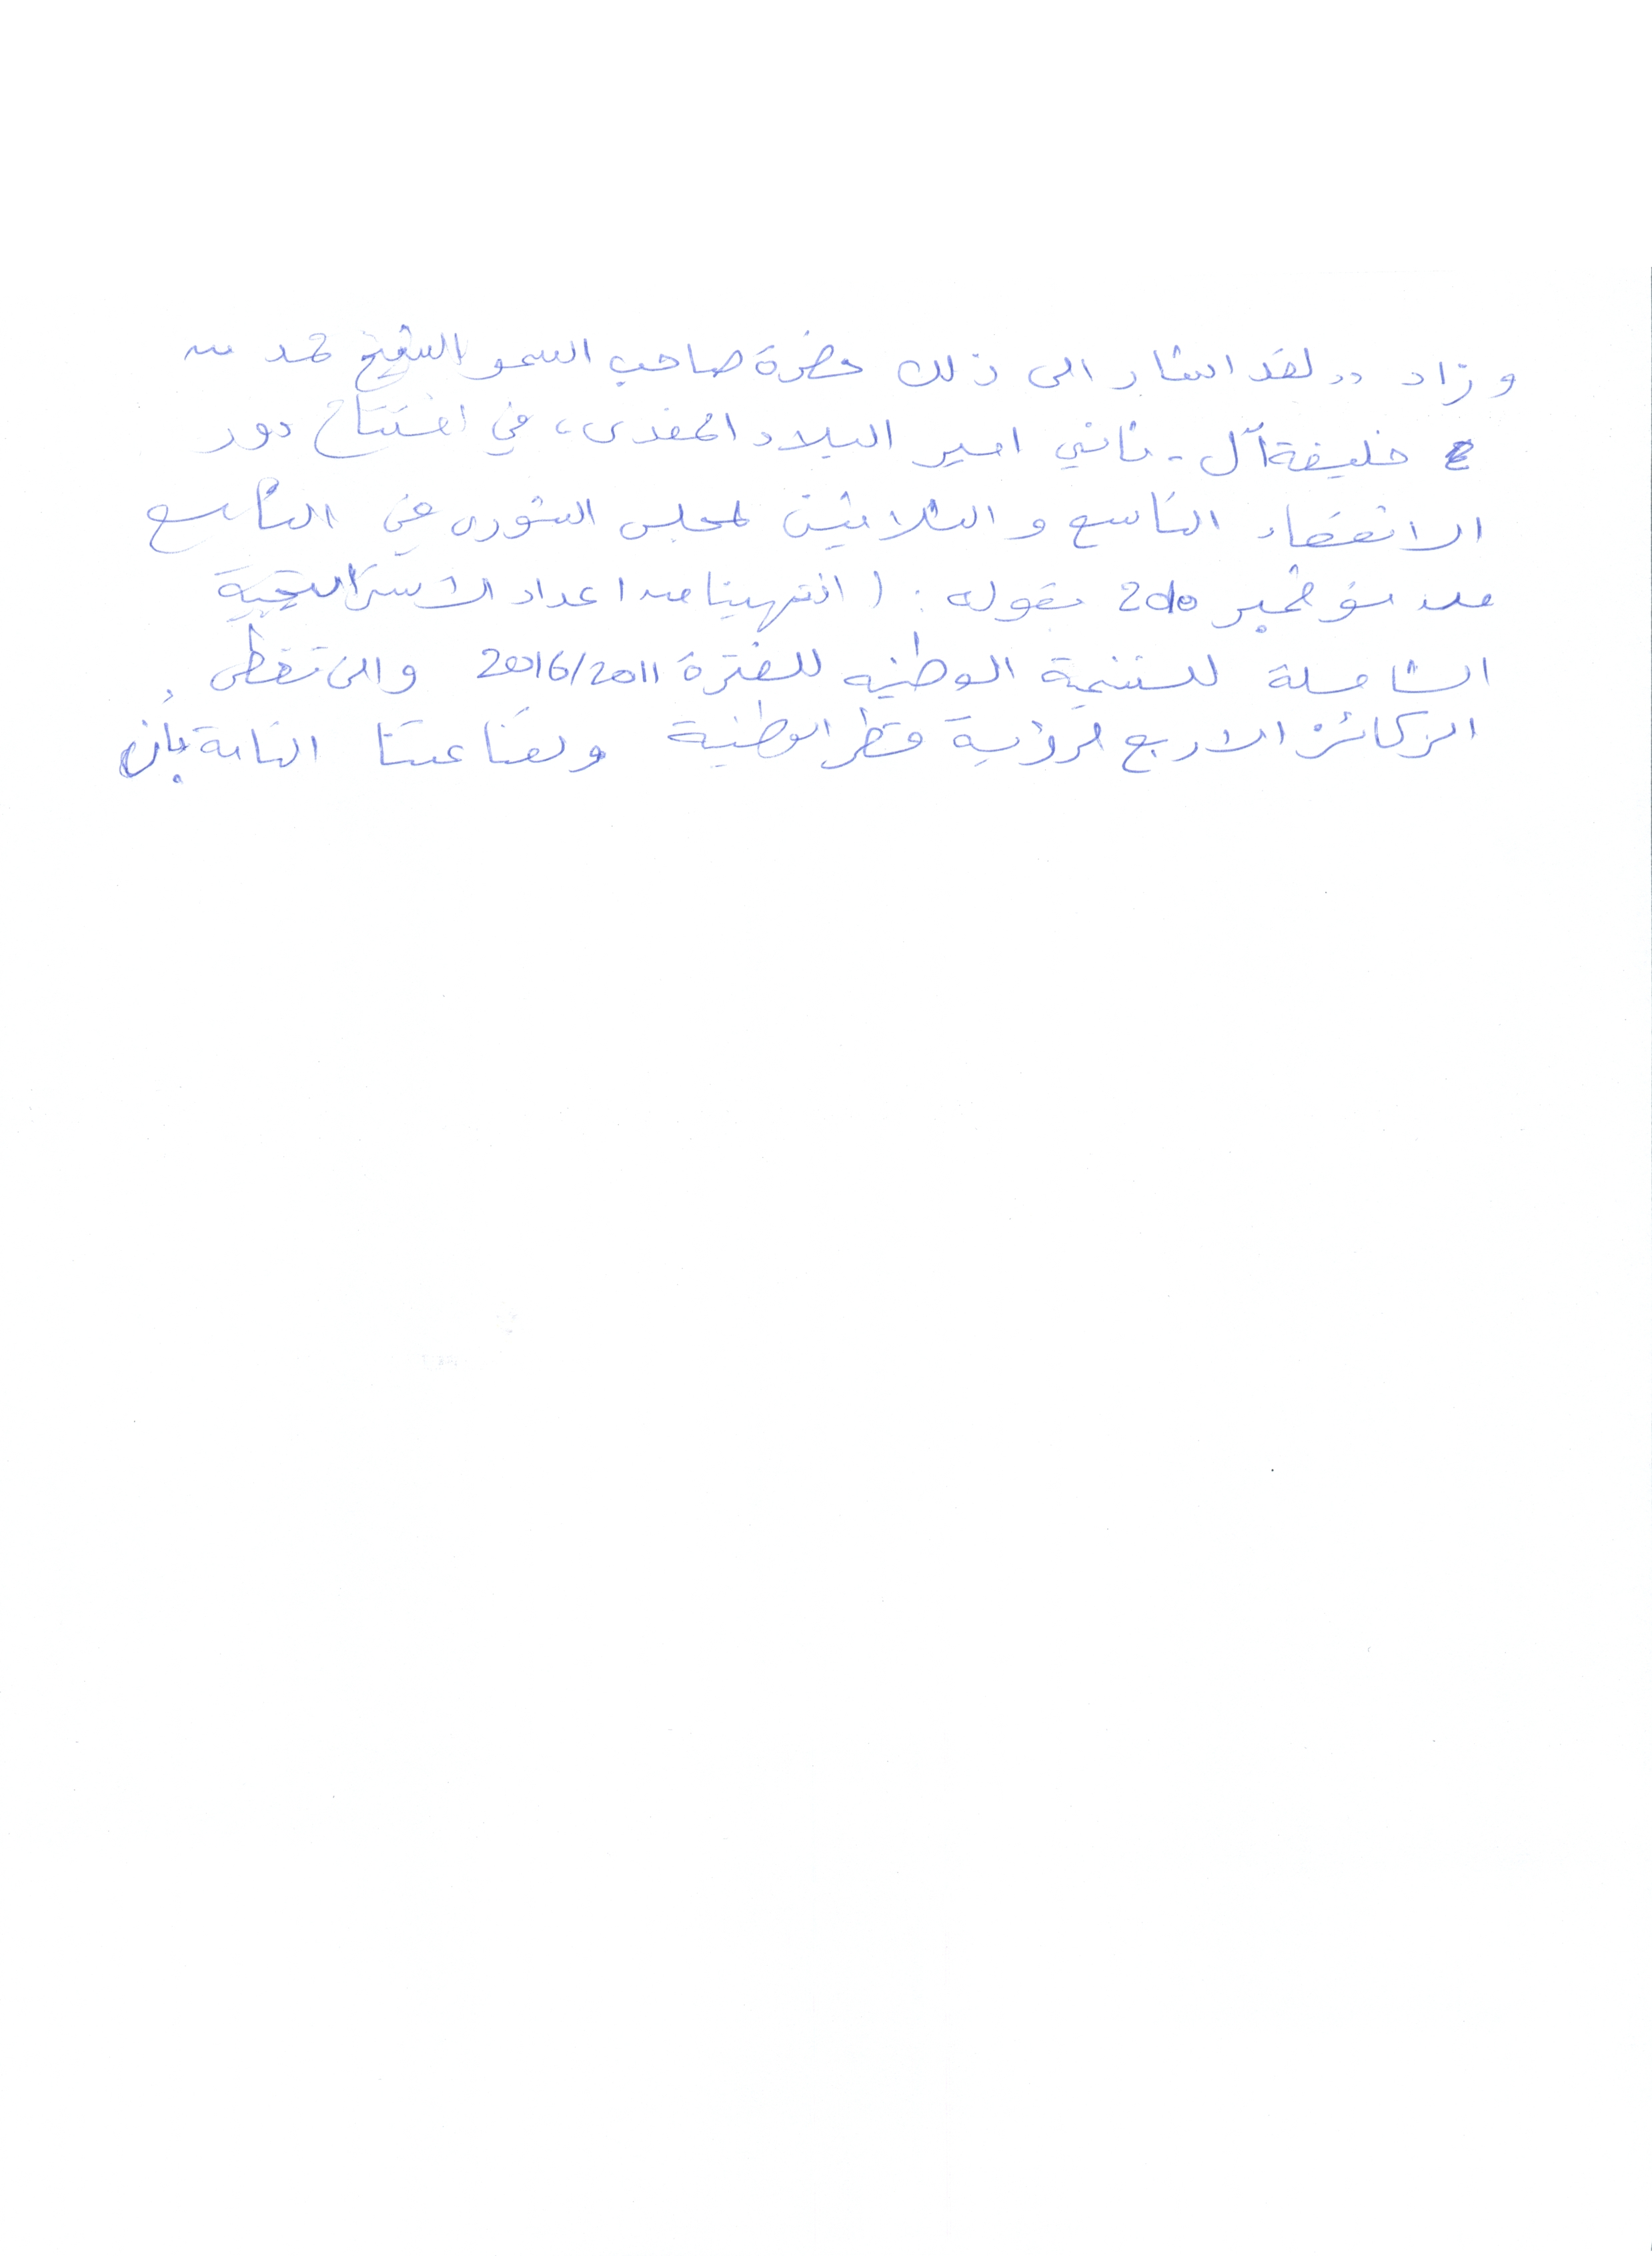 وزاد "لقد اشار الى ذلك حضرة صاحب السمو الشيخ حمد بن
خليفة آل - ثاني امير البلاد المفدى، في افتتاح دور
الانعقاد التاسع والثلاثين لمجلس الشورى في التاسع
من نوفمبر 2010 بقوله: (انتهينا من اعداد الاستراتيجية
الشاملة للتنمية الوطنيه للفترة 2016/2011 والتى تغطى
الركائز الاربع لرؤية قطر الوطنية ولقناعتنا التامة بأن